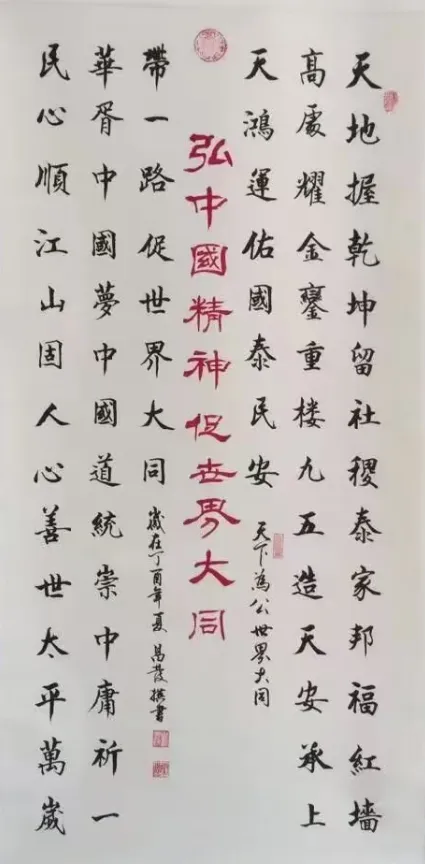 天地握乾坤留社稷泰家邦福紅墻
高處耀金鑾重楼九五造天安承上
天鴻運佑國泰民安
天下為公世界大同
弘中國精神促世界大同
民心順江山固人心善世太平萬歲
華胥中國夢中國道統崇中庸祈一
帶一路促世界大同
歲在丁酉年夏昌發撰書